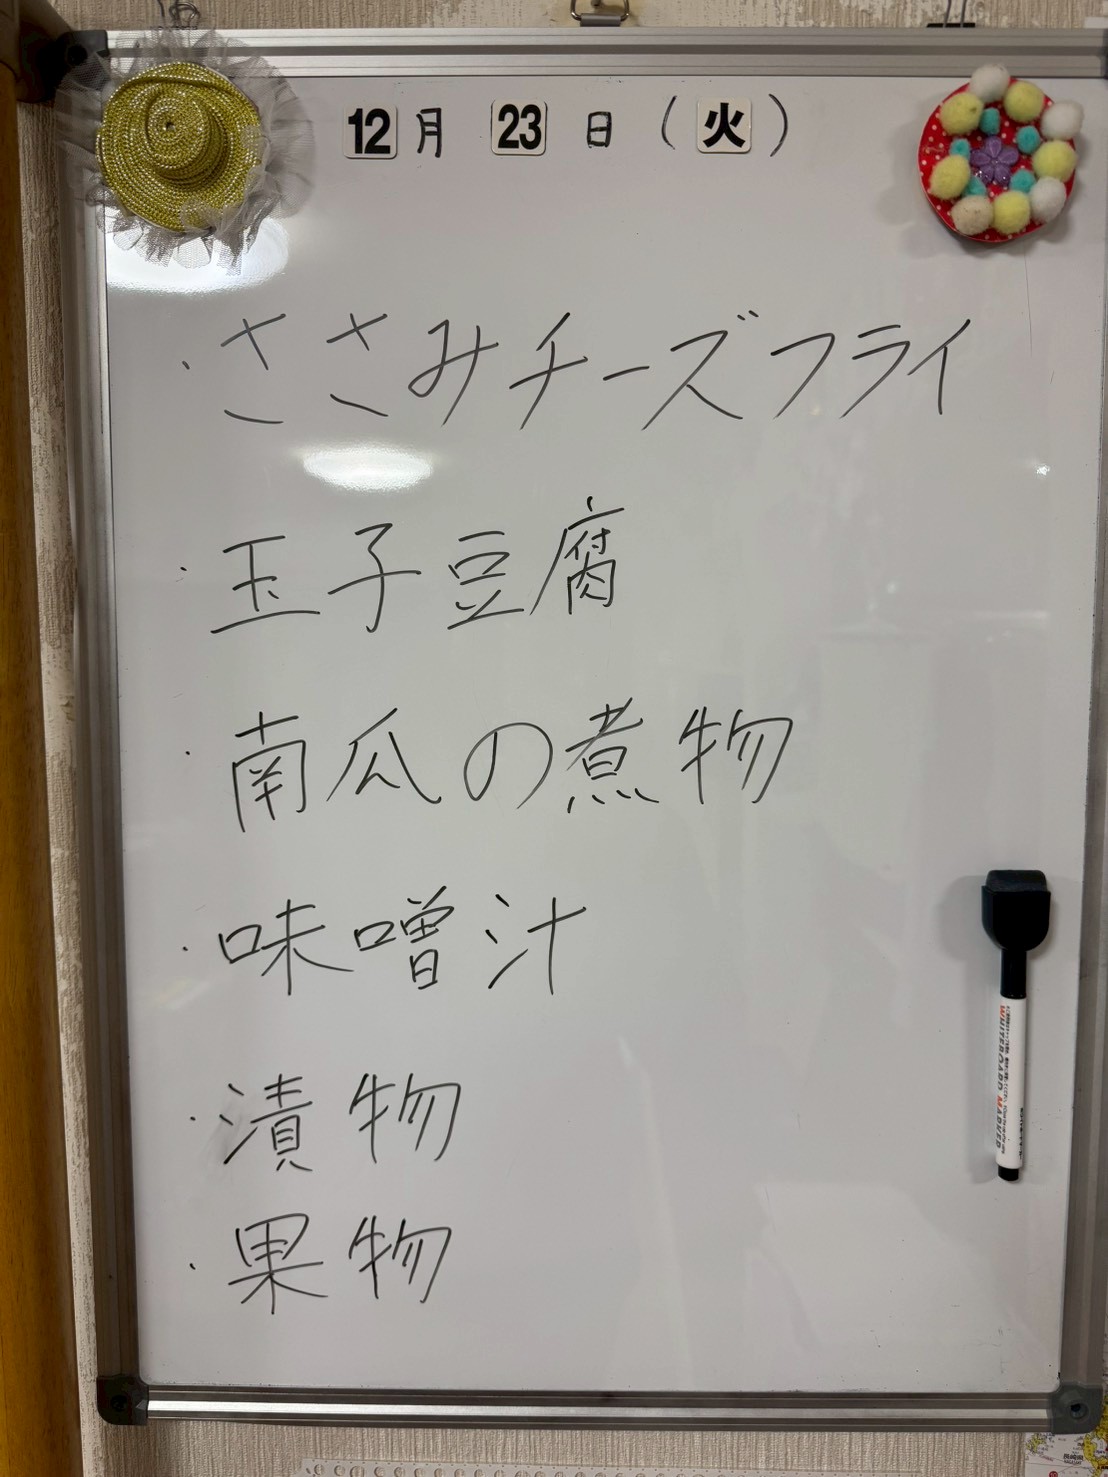 12月 23 日 (火)
・ささみチーズフライ
・玉子豆腐
・南瓜の煮物
・味噌汁
・漬物
・果物
WHITEBOARD MARKER